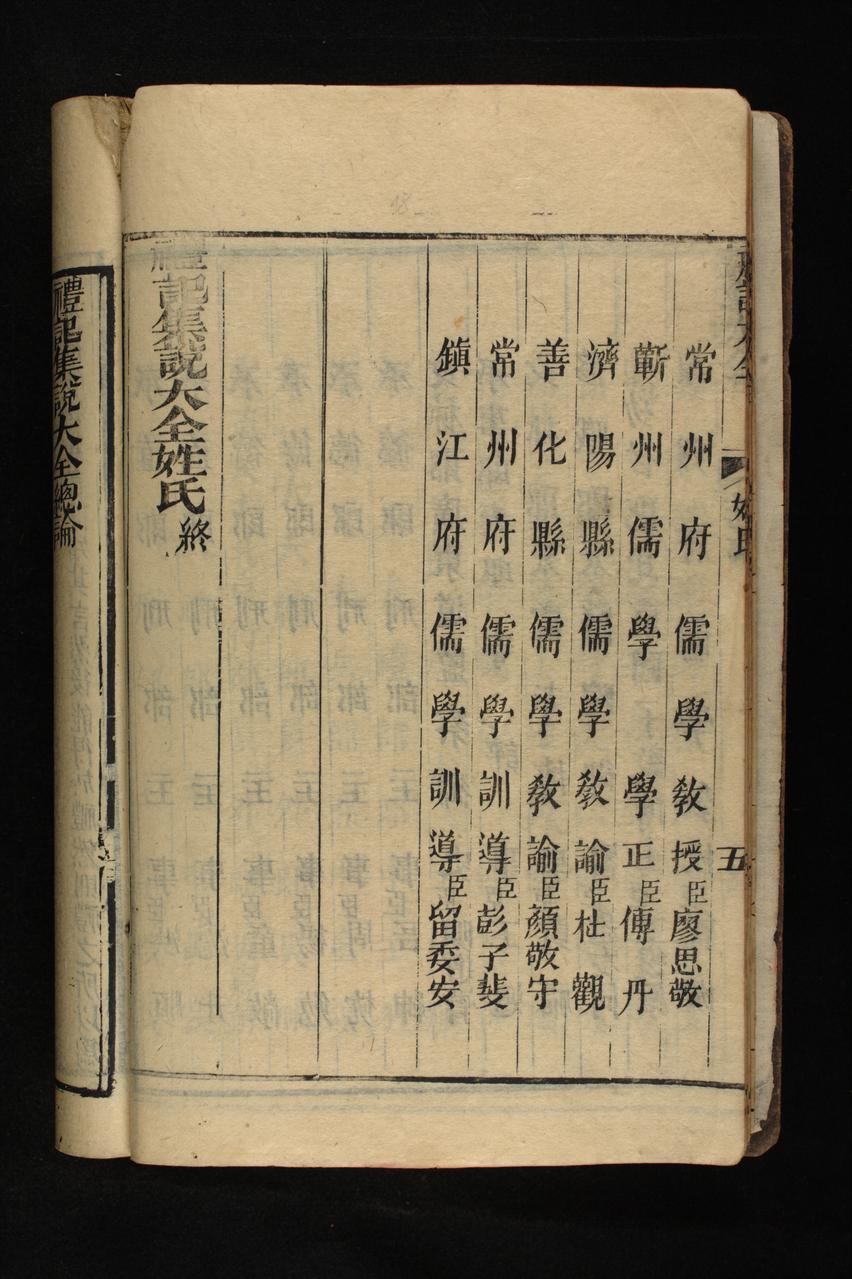 禮記大全
姓氏
五
常州府儒學教授臣廖思敬
蘄州儒學學正臣傅丹
濟陽縣儒學教諭臣杜觀
善化縣儒學教諭臣顏敬守
常州府儒學訓導臣彭子斐
鎮江府儒學訓導臣留季安
禮記集說大全姓氏終
禮記集說大全總論